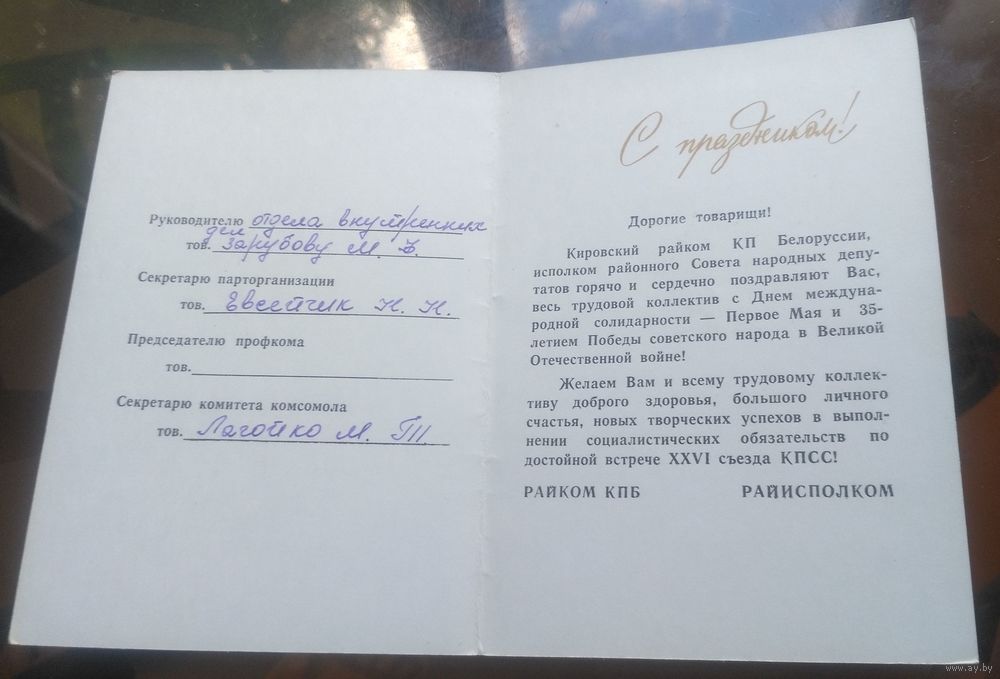 Руководителю отдела внутренних
дел
тов. Зарубову М. Б.
Секретарю парторганизации
тов. Евсейчик Н. Н.
Председателю профкома
тов.
Секретарю комитета комсомола
тов. Лагойко М. П.
С праздником!
Дорогие товарищи!
Кировский райком КП Белоруссии,
исполком районного Совета народных депу-
татов горячо и сердечно поздравляют Вас,
весь трудовой коллектив с Днем междуна-
родной солидарности — Первое Мая и 35-
летием Победы советского народа в Великой
Отечественной войне!
Желаем Вам и всему трудовому коллек-
тиву доброго здоровья, большого личного
счастья, новых творческих успехов в выпол-
нении социалистических обязательств по
достойной встрече XXVI съезда КПСС!
РАЙКОМ КПБ РАЙИСПОЛКОМ
www.ay.by